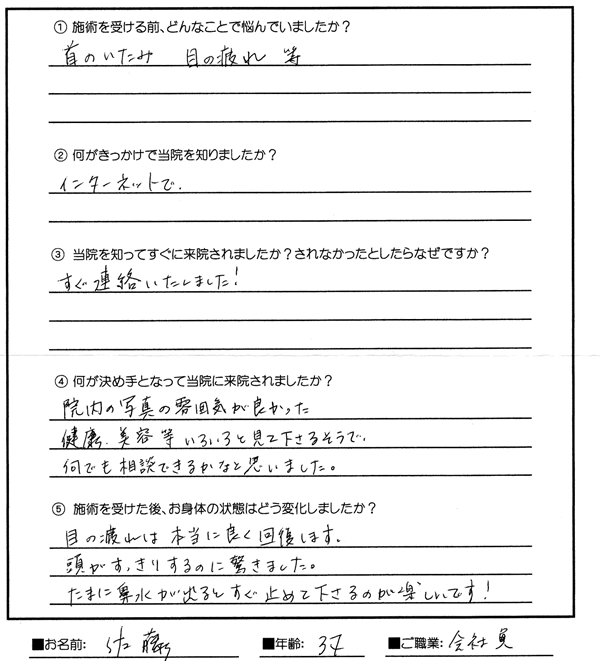 ① 施術を受ける前、どんなことで悩んでいましたか？
首のいたみ 目の疲れ 等
② 何がきっかけで当院を知りましたか？
インターネットで.
③ 当院を知ってすぐに来院されましたか？されなかったとしたらなぜですか？
すぐ連絡いたしました！
④ 何が決め手となって当院に来院されましたか？
院内の写真の雰囲気が良かった
健康.美容等いろいろと見て下さるそうで、
何でも相談できるかなと思いました。
⑤ 施術を受けた後、お身体の状態はどう変化しましたか？
目の疲れは本当に良く回復します.
頭がすっきりするのに驚きました。
たまに鼻水が出るとすぐ止めて下さるのが楽しいです！
■お名前: 佐藤 ■年齢: 37 ■ご職業: 会社員